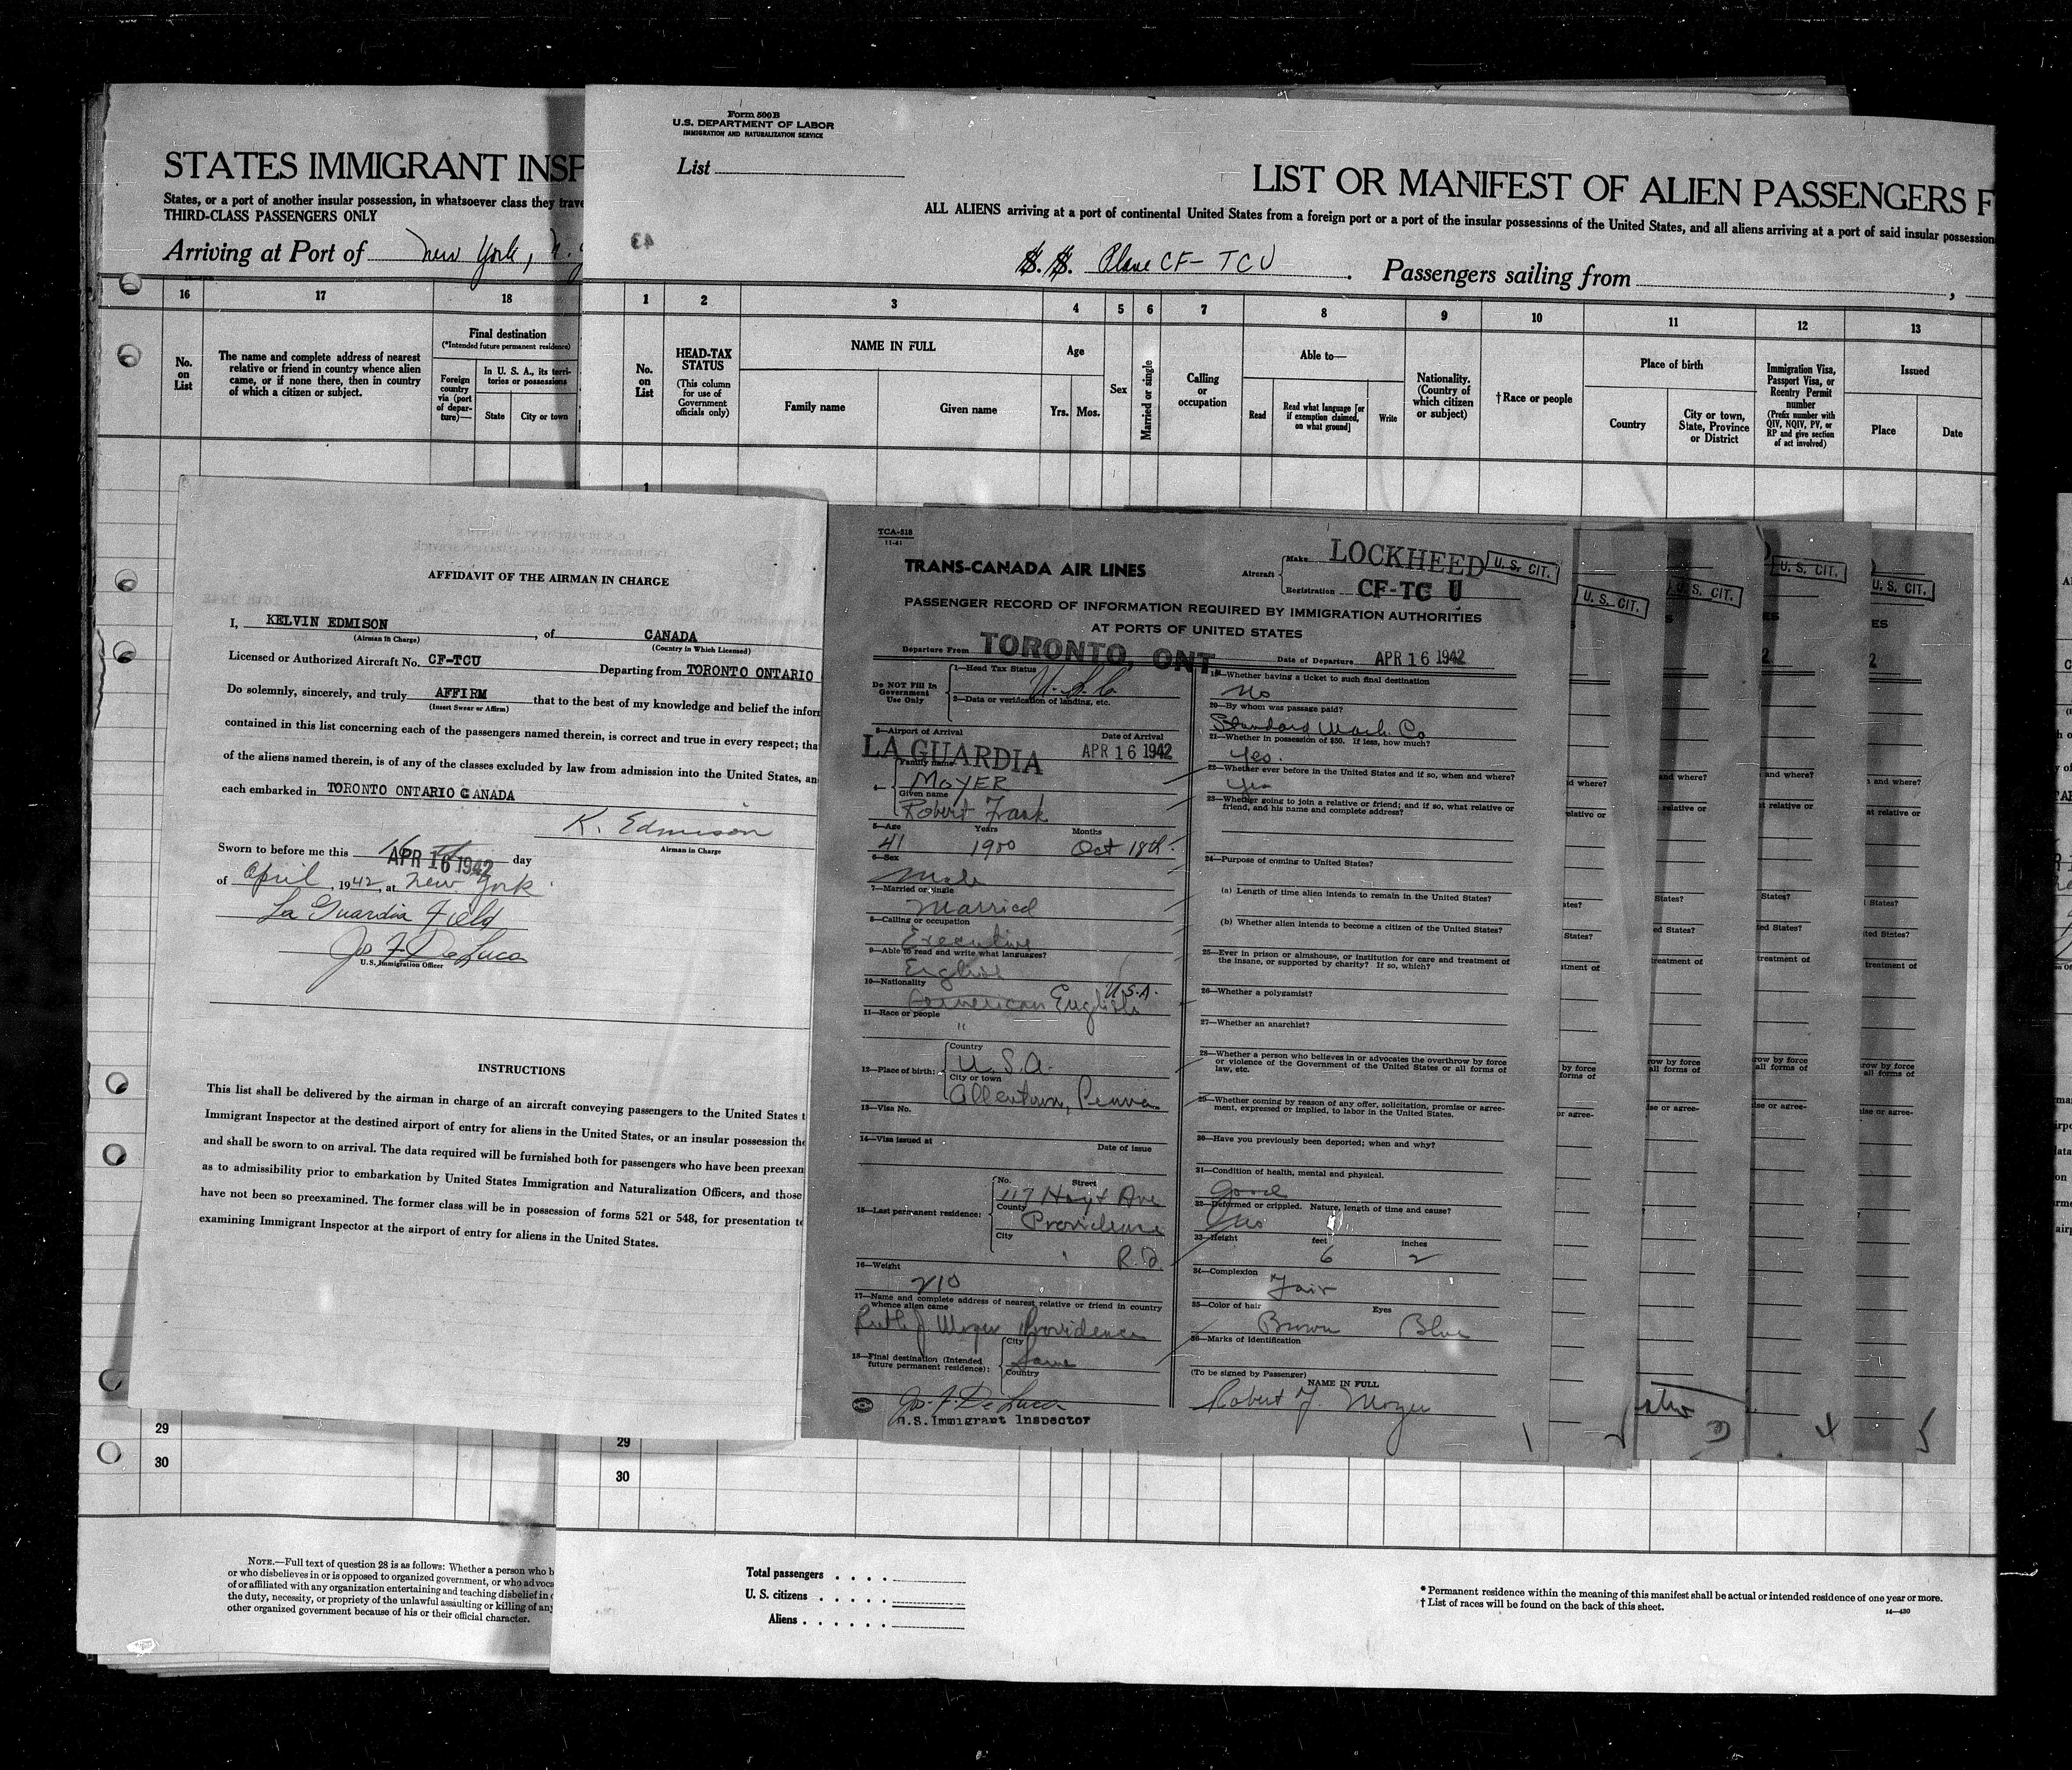 STATES IMMIGRANT INSP
States, or a port of another insular possession, in whatsoever class they trave
THIRD-CLASS PASSENGERS ONLY
Arriving at Port of New York, N.Y
16 17 18
No. on List
The name and complete address of nearest
relative or friend in country whence alien
came, or if none there, then in country
of which a citizen or subject.
Final destination
(*Intended future permanent residence)
Foreign
country
via (port
of depar-
ture)—
In U. S. A., its terri-
tories or possessions
State City or town
Form 500 B
U.S. DEPARTMENT OF LABOR
IMMIGRATION AND NATURALIZATION SERVICE
List
LIST OR MANIFEST OF ALIEN PASSENGERS F
ALL ALIENS arriving at a port of continental United States from a foreign port or a port of the insular possessions of the United States, and all aliens arriving at a port of said insular possession
43
S. S. Plane CF-TCU . Passengers sailing from ,
1 2 3 4 5 6 7 8 9 10 11 12 13
No.
on
List
HEAD-TAX
STATUS
(This column
for use of
Government
officials only)
NAME IN FULL
Family name Given name
Age
Yrs. Mos.
Sex
Married or single
Calling
or
occupation
Able to—
Read
Read what language [or
if exemption claimed,
on what ground]
Write
Nationality.
(Country of
which citizen
or subject)
†Race or people
Place of birth
Country
City or town,
State, Province
or District
Immigration Visa,
Passport Visa, or
Reentry Permit
number
(Prefix number with
QIV, NQIV, PV, or
RP and give section
of act involved)
Issued
Place Date
1
AFFIDAVIT OF THE AIRMAN IN CHARGE
I, KELVIN EDMISON , of CANADA
(Airman in Charge) (Country in Which Licensed)
Licensed or Authorized Aircraft No. CF-TCU Departing from TORONTO ONTARIO
Do solemnly, sincerely, and truly AFFIRM that to the best of my knowledge and belief the infor
(Insert Swear or Affirm)
contained in this list concerning each of the passengers named therein, is correct and true in every respect; tha
of the aliens named therein, is of any of the classes excluded by law from admission into the United States, an
each embarked in TORONTO ONTARIO CANADA
K. Edmison
Airman in Charge
Sworn to before me this 16 APR 16 1942 day
of April , 1942, at New York
La Guardia Field
Jos. F. De Luca
U.S. Immigration Officer
INSTRUCTIONS
This list shall be delivered by the airman in charge of an aircraft conveying passengers to the United States t
Immigrant Inspector at the destined airport of entry for aliens in the United States, or an insular possession the
and shall be sworn to on arrival. The data required will be furnished both for passengers who have been preexam
as to admissibility prior to embarkation by United States Immigration and Naturalization Officers, and those
have not been so preexamined. The former class will be in possession of forms 521 or 548, for presentation to
examining Immigrant Inspector at the airport of entry for aliens in the United States.
TCA-518
11-41
TRANS-CANADA AIR LINES
Aircraft Make LOCKHEED U. S. CIT.
Registration CF-TC U
PASSENGER RECORD OF INFORMATION REQUIRED BY IMMIGRATION AUTHORITIES
AT PORTS OF UNITED STATES
Departure From TORONTO, ONT. Date of Departure APR 16 1942
Do NOT Fill In
Government
Use Only
1—Head Tax Status U.S.C.
2—Data or verification of landing, etc.
3—Airport of Arrival Date of Arrival
LA GUARDIA APR 16 1942
4—
Family name
MOYER
Given name
Robert Frank
5—Age Years Months
41 1900 Oct 18th
6—Sex
Male
7—Married or single
Married
8—Calling or occupation
Executive
9—Able to read and write what languages?
English
10—Nationality U.S.A.
American English
11—Race or people
"
12—Place of birth:
Country
U.S.A.
City or town
Allentown, Penna.
13—Visa No.
14—Visa issued at Date of issue
15—Last permanent residence:
No. Street
117 Hoyt Ave
County
Providence
City
R.I.
16—Weight
210
17—Name and complete address of nearest relative or friend in country
whence alien came
Ruth J Moyer Providence
18—Final destination (Intended
future permanent residence):
City
Same
Country
Jos. F. De Luca
U.S. Immigrant Inspector
19—Whether having a ticket to such final destination
No
20—By whom was passage paid?
Standard Mach. Co
21—Whether in possession of $50. If less, how much?
Yes.
22—Whether ever before in the United States and if so, when and where?
Yes
23—Whether going to join a relative or friend; and if so, what relative or
friend, and his name and complete address?
24—Purpose of coming to United States?
(a) Length of time alien intends to remain in the United States?
(b) Whether alien intends to become a citizen of the United States?
25—Ever in prison or almshouse, or institution for care and treatment of
the insane, or supported by charity? If so, which?
26—Whether a polygamist?
27—Whether an anarchist?
28—Whether a person who believes in or advocates the overthrow by force
or violence of the Government of the United States or all forms of
law, etc.
29—Whether coming by reason of any offer, solicitation, promise or agree-
ment, expressed or implied, to labor in the United States.
30—Have you previously been deported; when and why?
31—Condition of health, mental and physical.
Good
32—Deformed or crippled. Nature, length of time and cause?
No
33—Height feet inches
6 2
34—Complexion
Fair
35—Color of hair Eyes
Brown Blue
36—Marks of identification
(To be signed by Passenger)
NAME IN FULL
Robert F. Moyer
1
U. S. CIT.
U. S. CIT.
U. S. CIT.
U. S. CIT.
4
5
29
30
29
30
NOTE.—Full text of question 28 is as follows: Whether a person who b
or who disbelieves in or is opposed to organized government, or who advoca
of or affiliated with any organization entertaining and teaching disbelief in
the duty, necessity, or propriety of the unlawful assaulting or killing of any
other organized government because of his or their official character.
Total passengers . . . .
U. S. citizens . . . . .
Aliens . . . . . .
* Permanent residence within the meaning of this manifest shall be actual or intended residence of one year or more.
† List of races will be found on the back of this sheet.
14—430